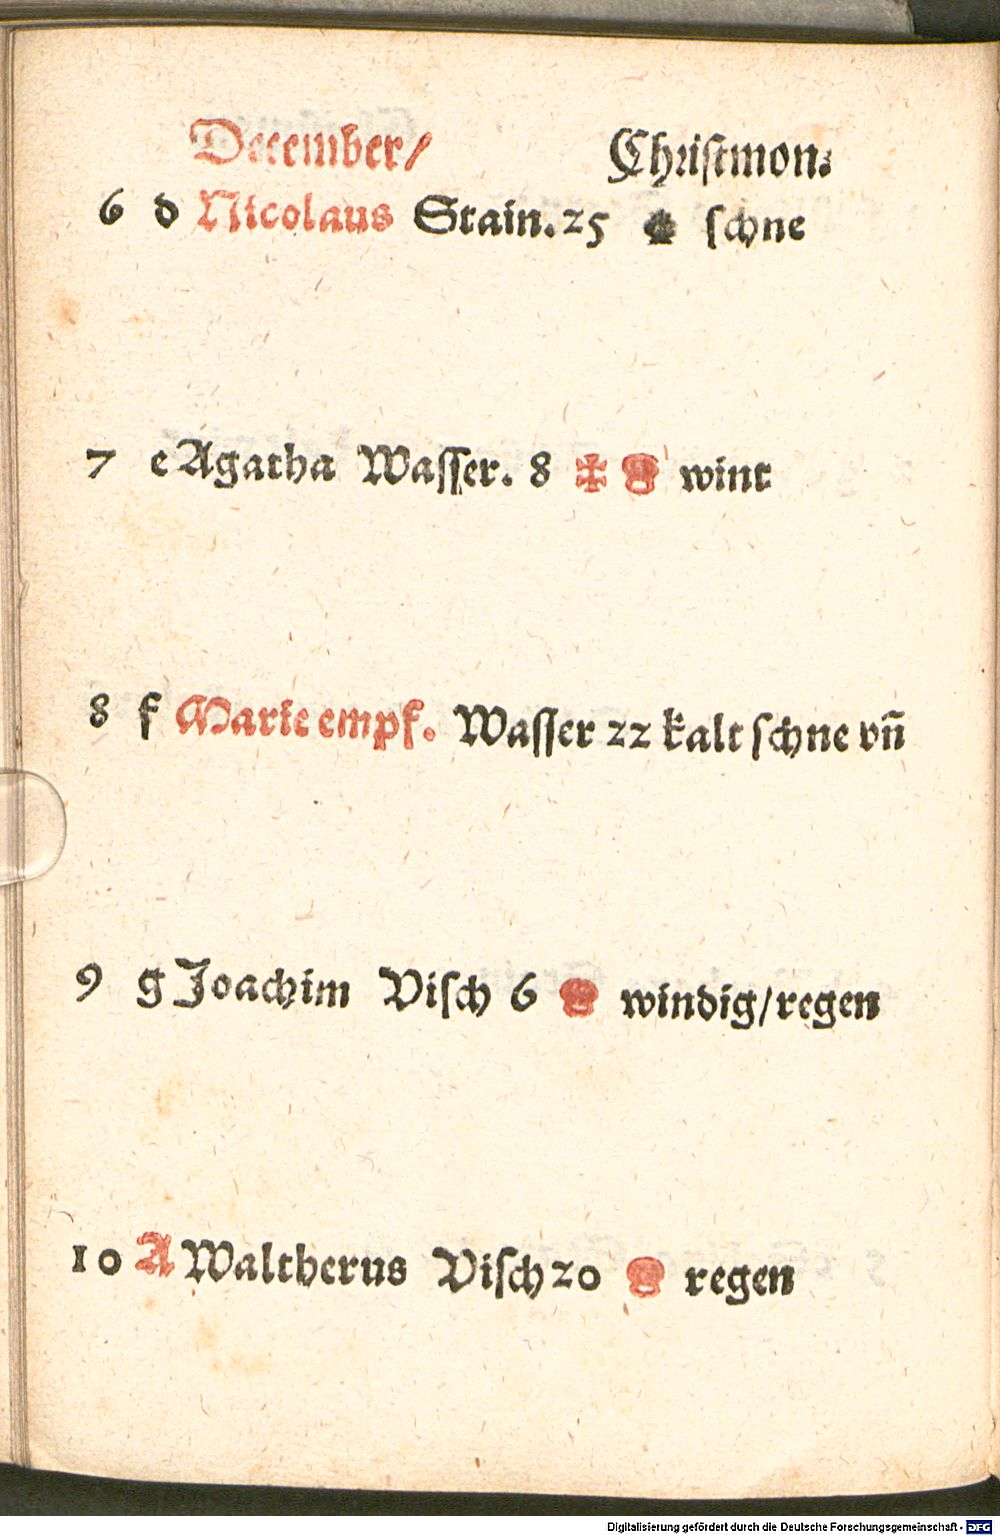 December/ Christmon:
6 d Nicolaus Stain. 25 schne
7 e Agatha Wasser. 8 ✠ wint
8 f Marie empf. Wasser 22 kalt schne vñ
9 g Joachim Visch 6 windig/regen
10 A Waltherus Visch 20 regen
Digitalisierung gefördert durch die Deutsche Forschungsgemeinschaft - DFG